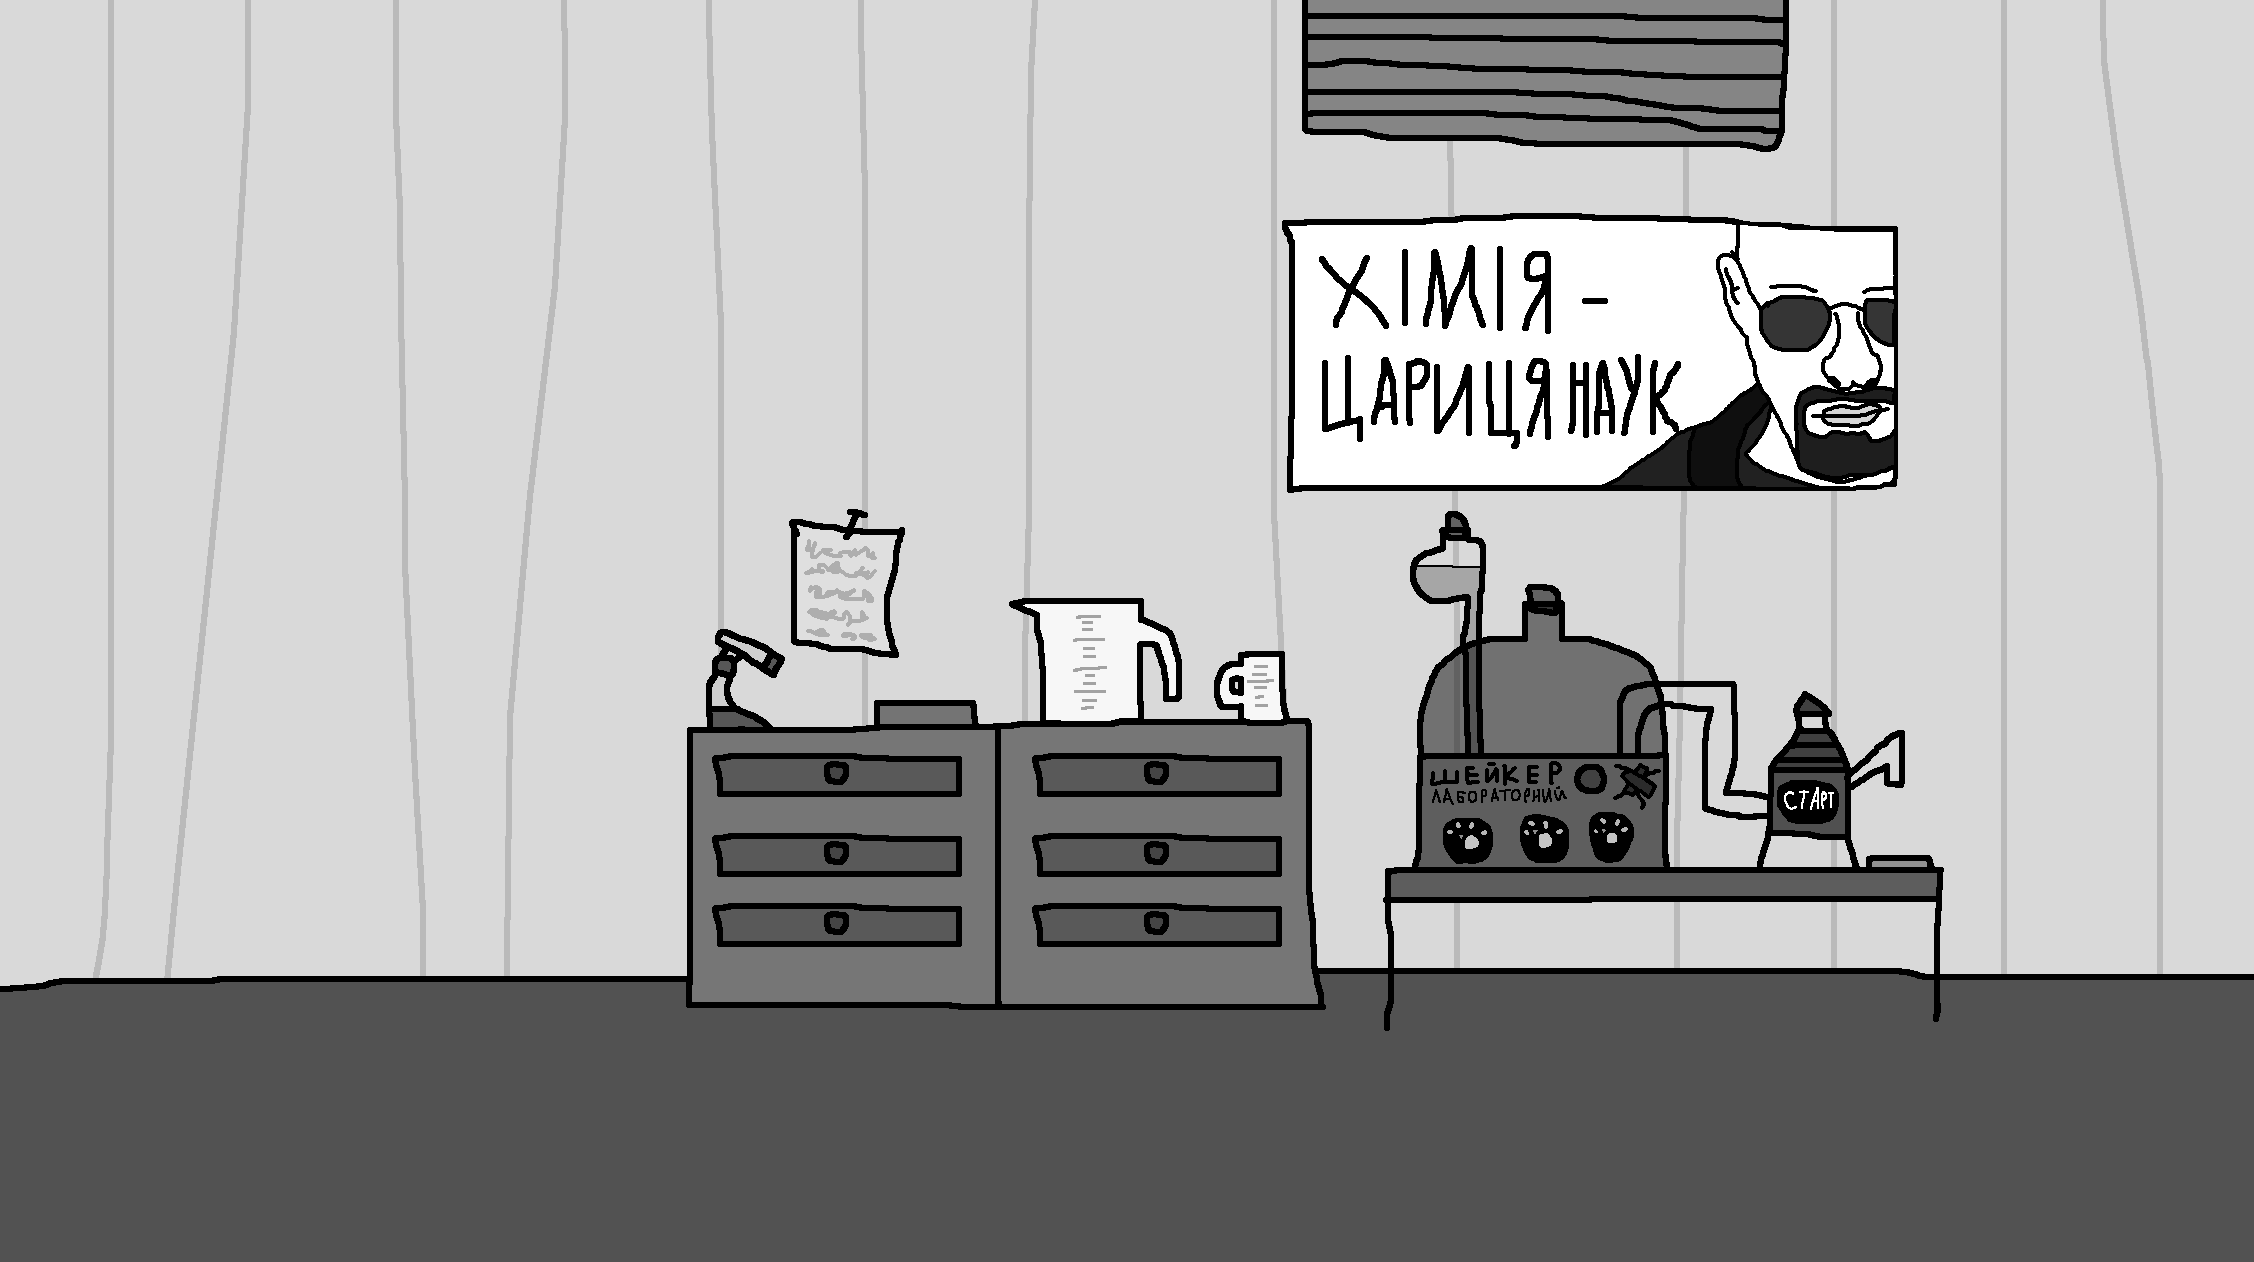 ХІМІЯ -
ЦАРИЦЯ НАУК
ШЕЙКЕР
ЛАБОРАТОРНИЙ
СТАРТ